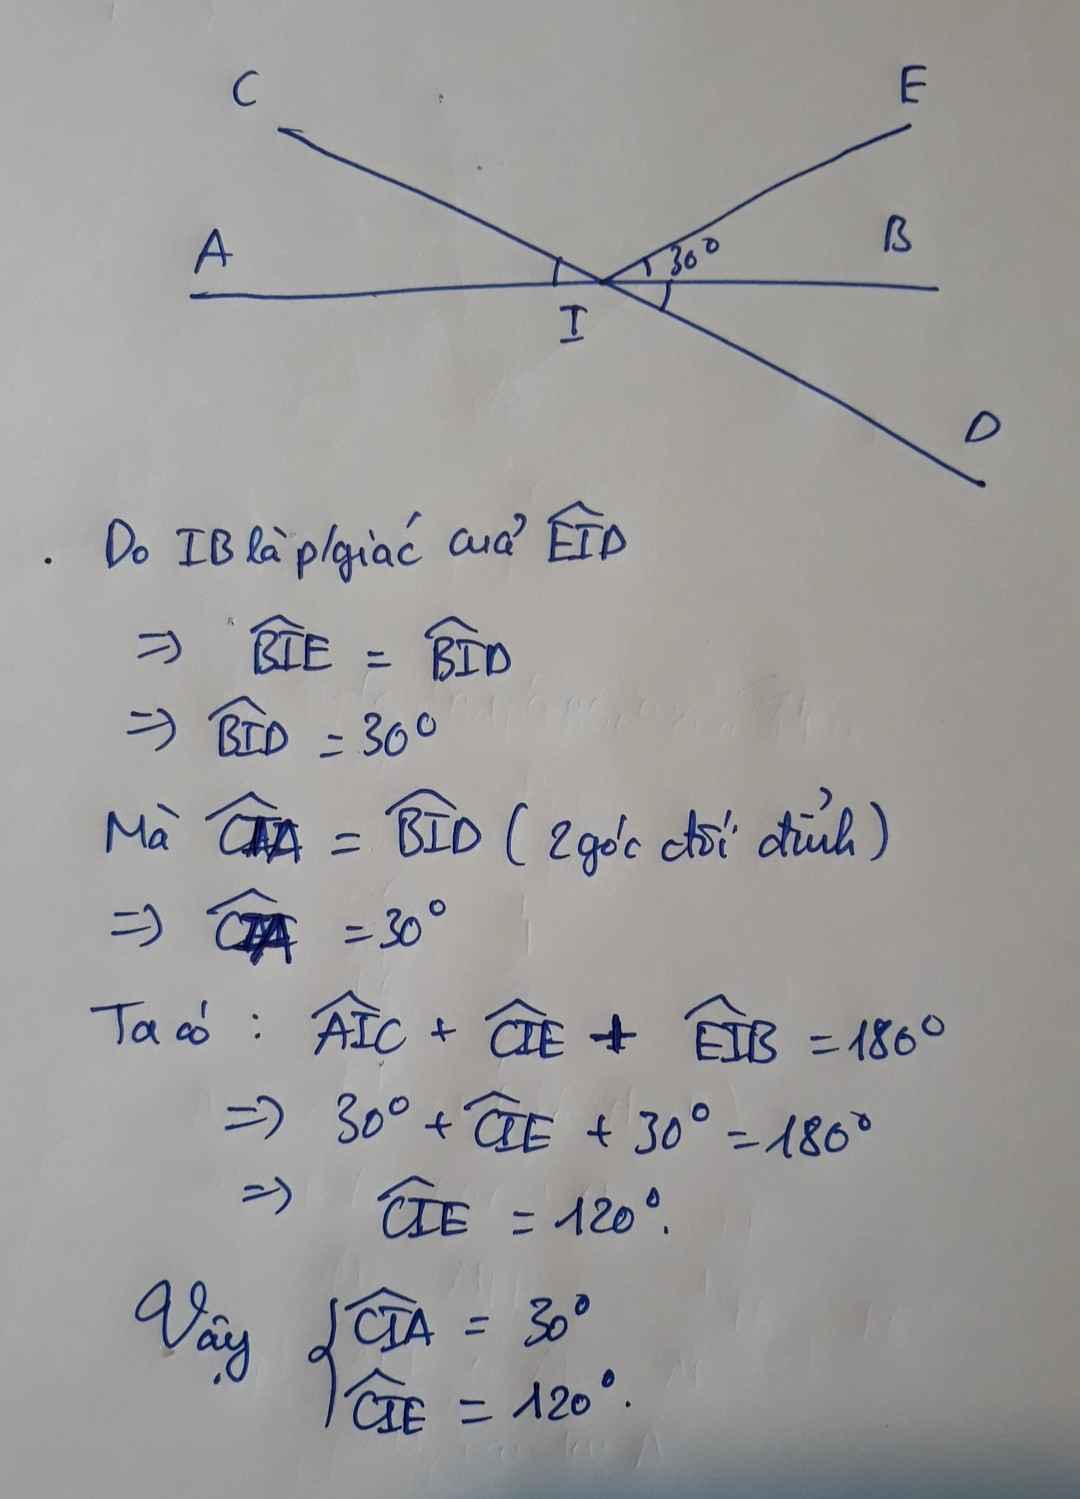 C
E
A
B
30°
I
D
. Do IB là p/giác của \widehat{EID}
=> \widehat{BIE} = \widehat{BID}
=> \widehat{BID} = 30°
Mà \widehat{CIA} = \widehat{BID} ( 2 góc đối đỉnh )
=> \widehat{CIA} = 30°
Ta có : \widehat{AIC} + \widehat{CIE} + \widehat{EIB} = 180°
=> 30° + \widehat{CIE} + 30° = 180°
=> \widehat{CIE} = 120°.
Vậy { \widehat{CIA} = 30°
\widehat{CIE} = 120°.